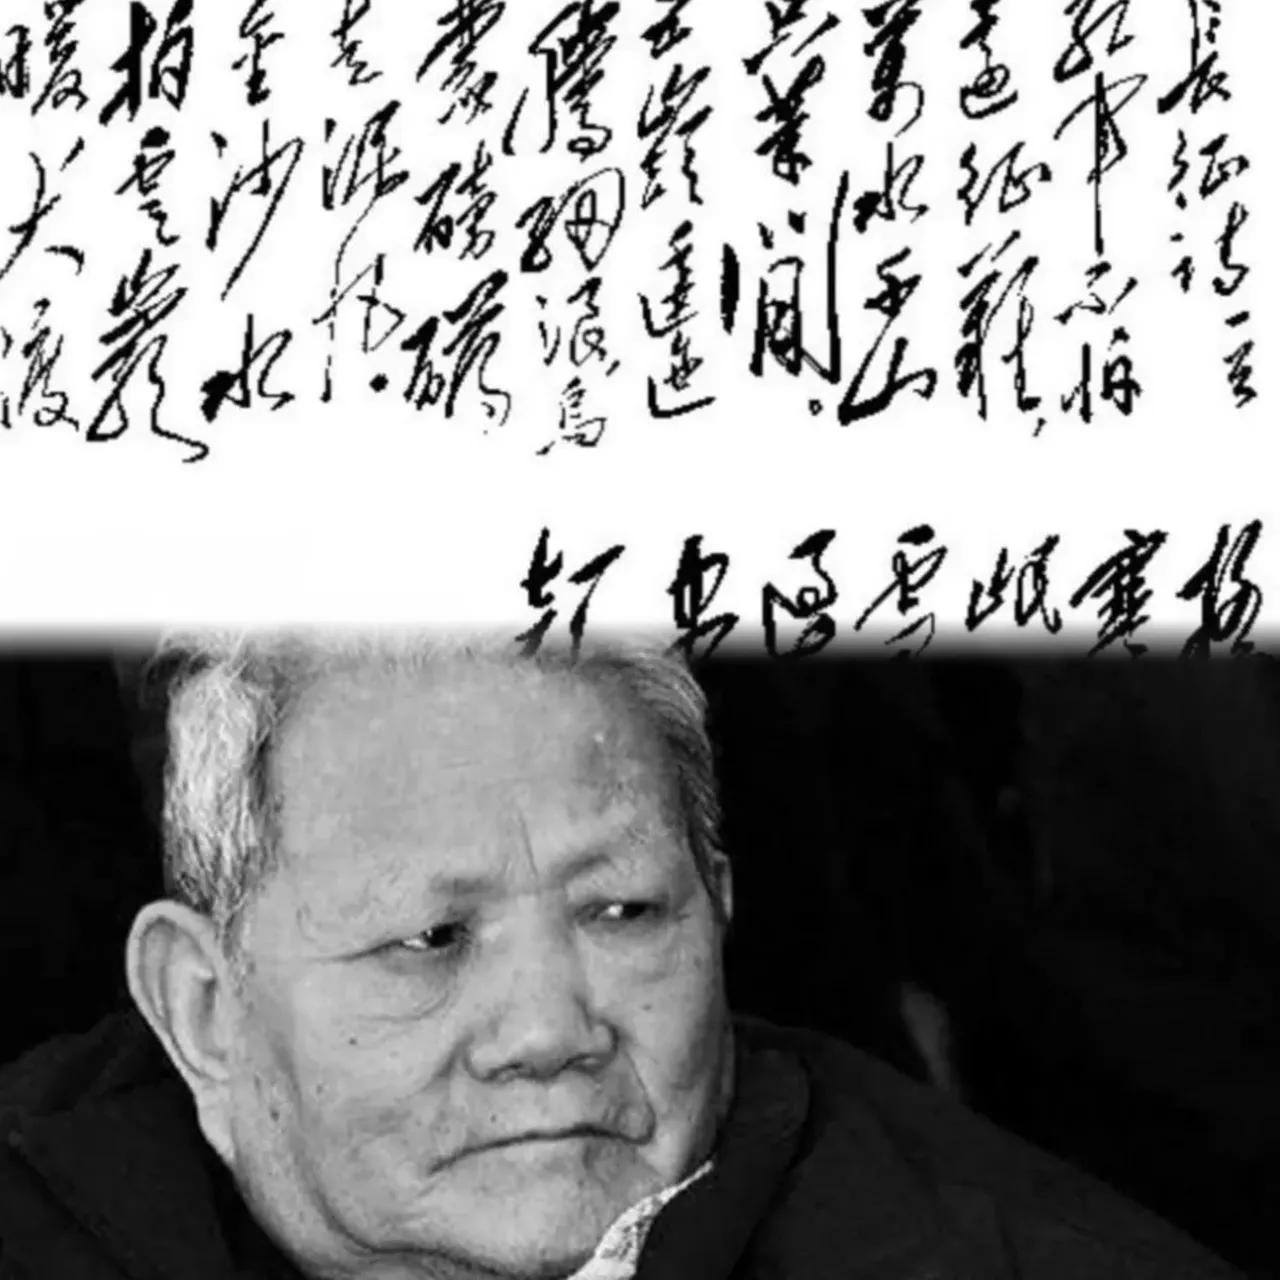 長征詩一首
紅軍不怕
遠征難,
萬水千山
只等閒。
五嶺逶迤
騰細浪,烏
蒙磅礴
走泥丸。
金沙水
拍雲巖
暖大渡
寒
岷
雪
過